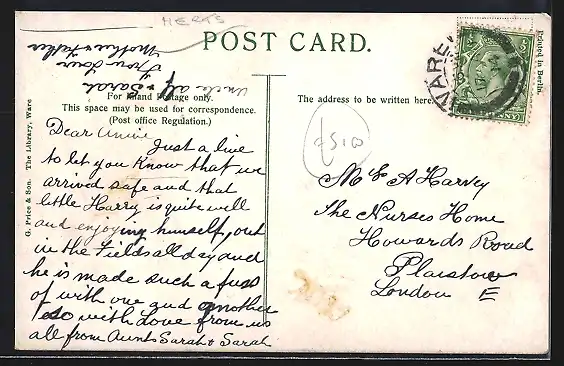 HERTS
POST CARD.
For Inland Postage only.
This space may be used for correspondence.
(Post office Regulation.)
The address to be written here.
Printed in Berlin.
G. Price & Son. The Library, Ware
WARE
£5.00
Dear Annie
Just a line
to let you Know that we
arrived safe and that
little Harry is quite well
and enjoying himself, out
in the Fields all day and
he is made such a fuss
of with one and another
so with love from us
all from Aunt Sarah & Sarah
Uncle Alf & Sarah
From your
Mother & Father
Mr A Harvey
The Nurses Home
Howards Road
Plaistow
London E